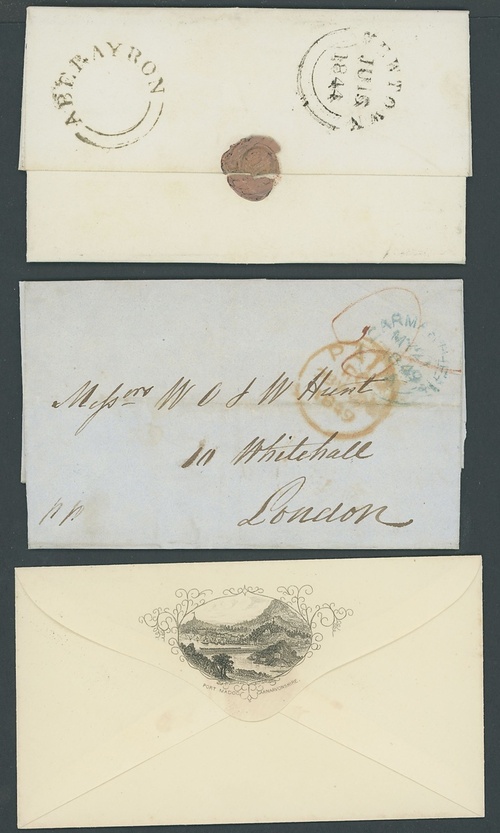 ABERAYRON
NEWTOWN
JU 18
1844
1849
Messrs W O & W Hunt
10 Whitehall
London
pp
PORT MADOC, CARNARVONSHIRE.